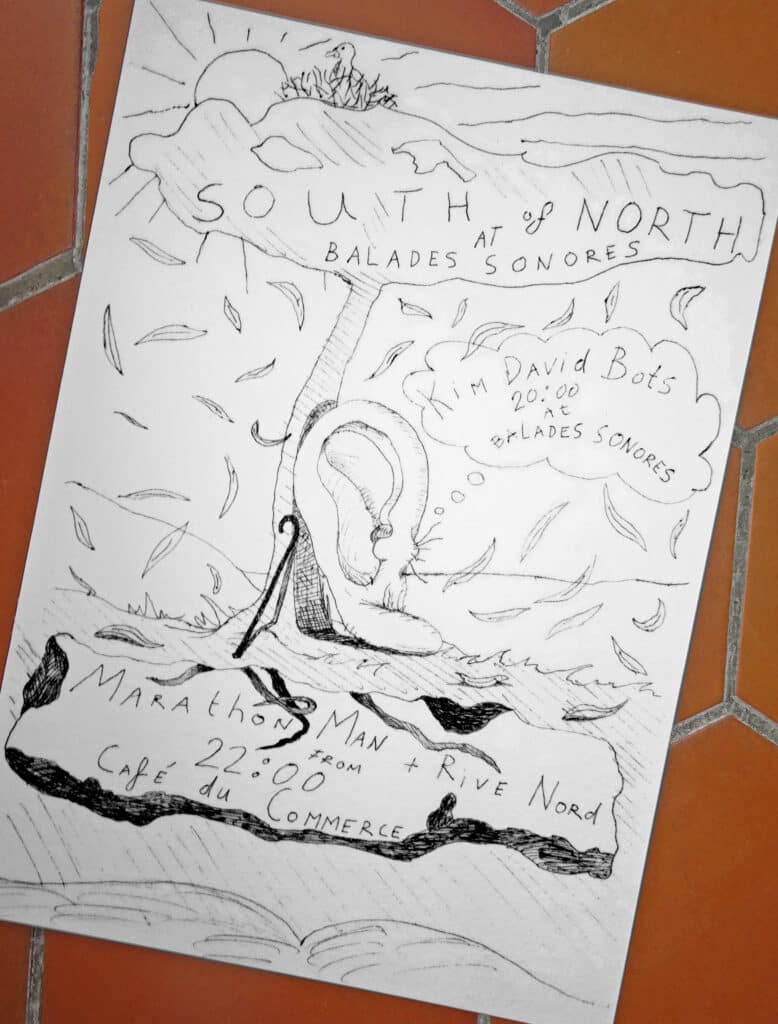 SOUTH of NORTH
AT
BALADES SONORES
Kim DAVid BotS
20:00
At
BALADES SONORES
MARAthON MAN + RivE NoRd
22:00 FROM
CAfÉ du COMMERCE